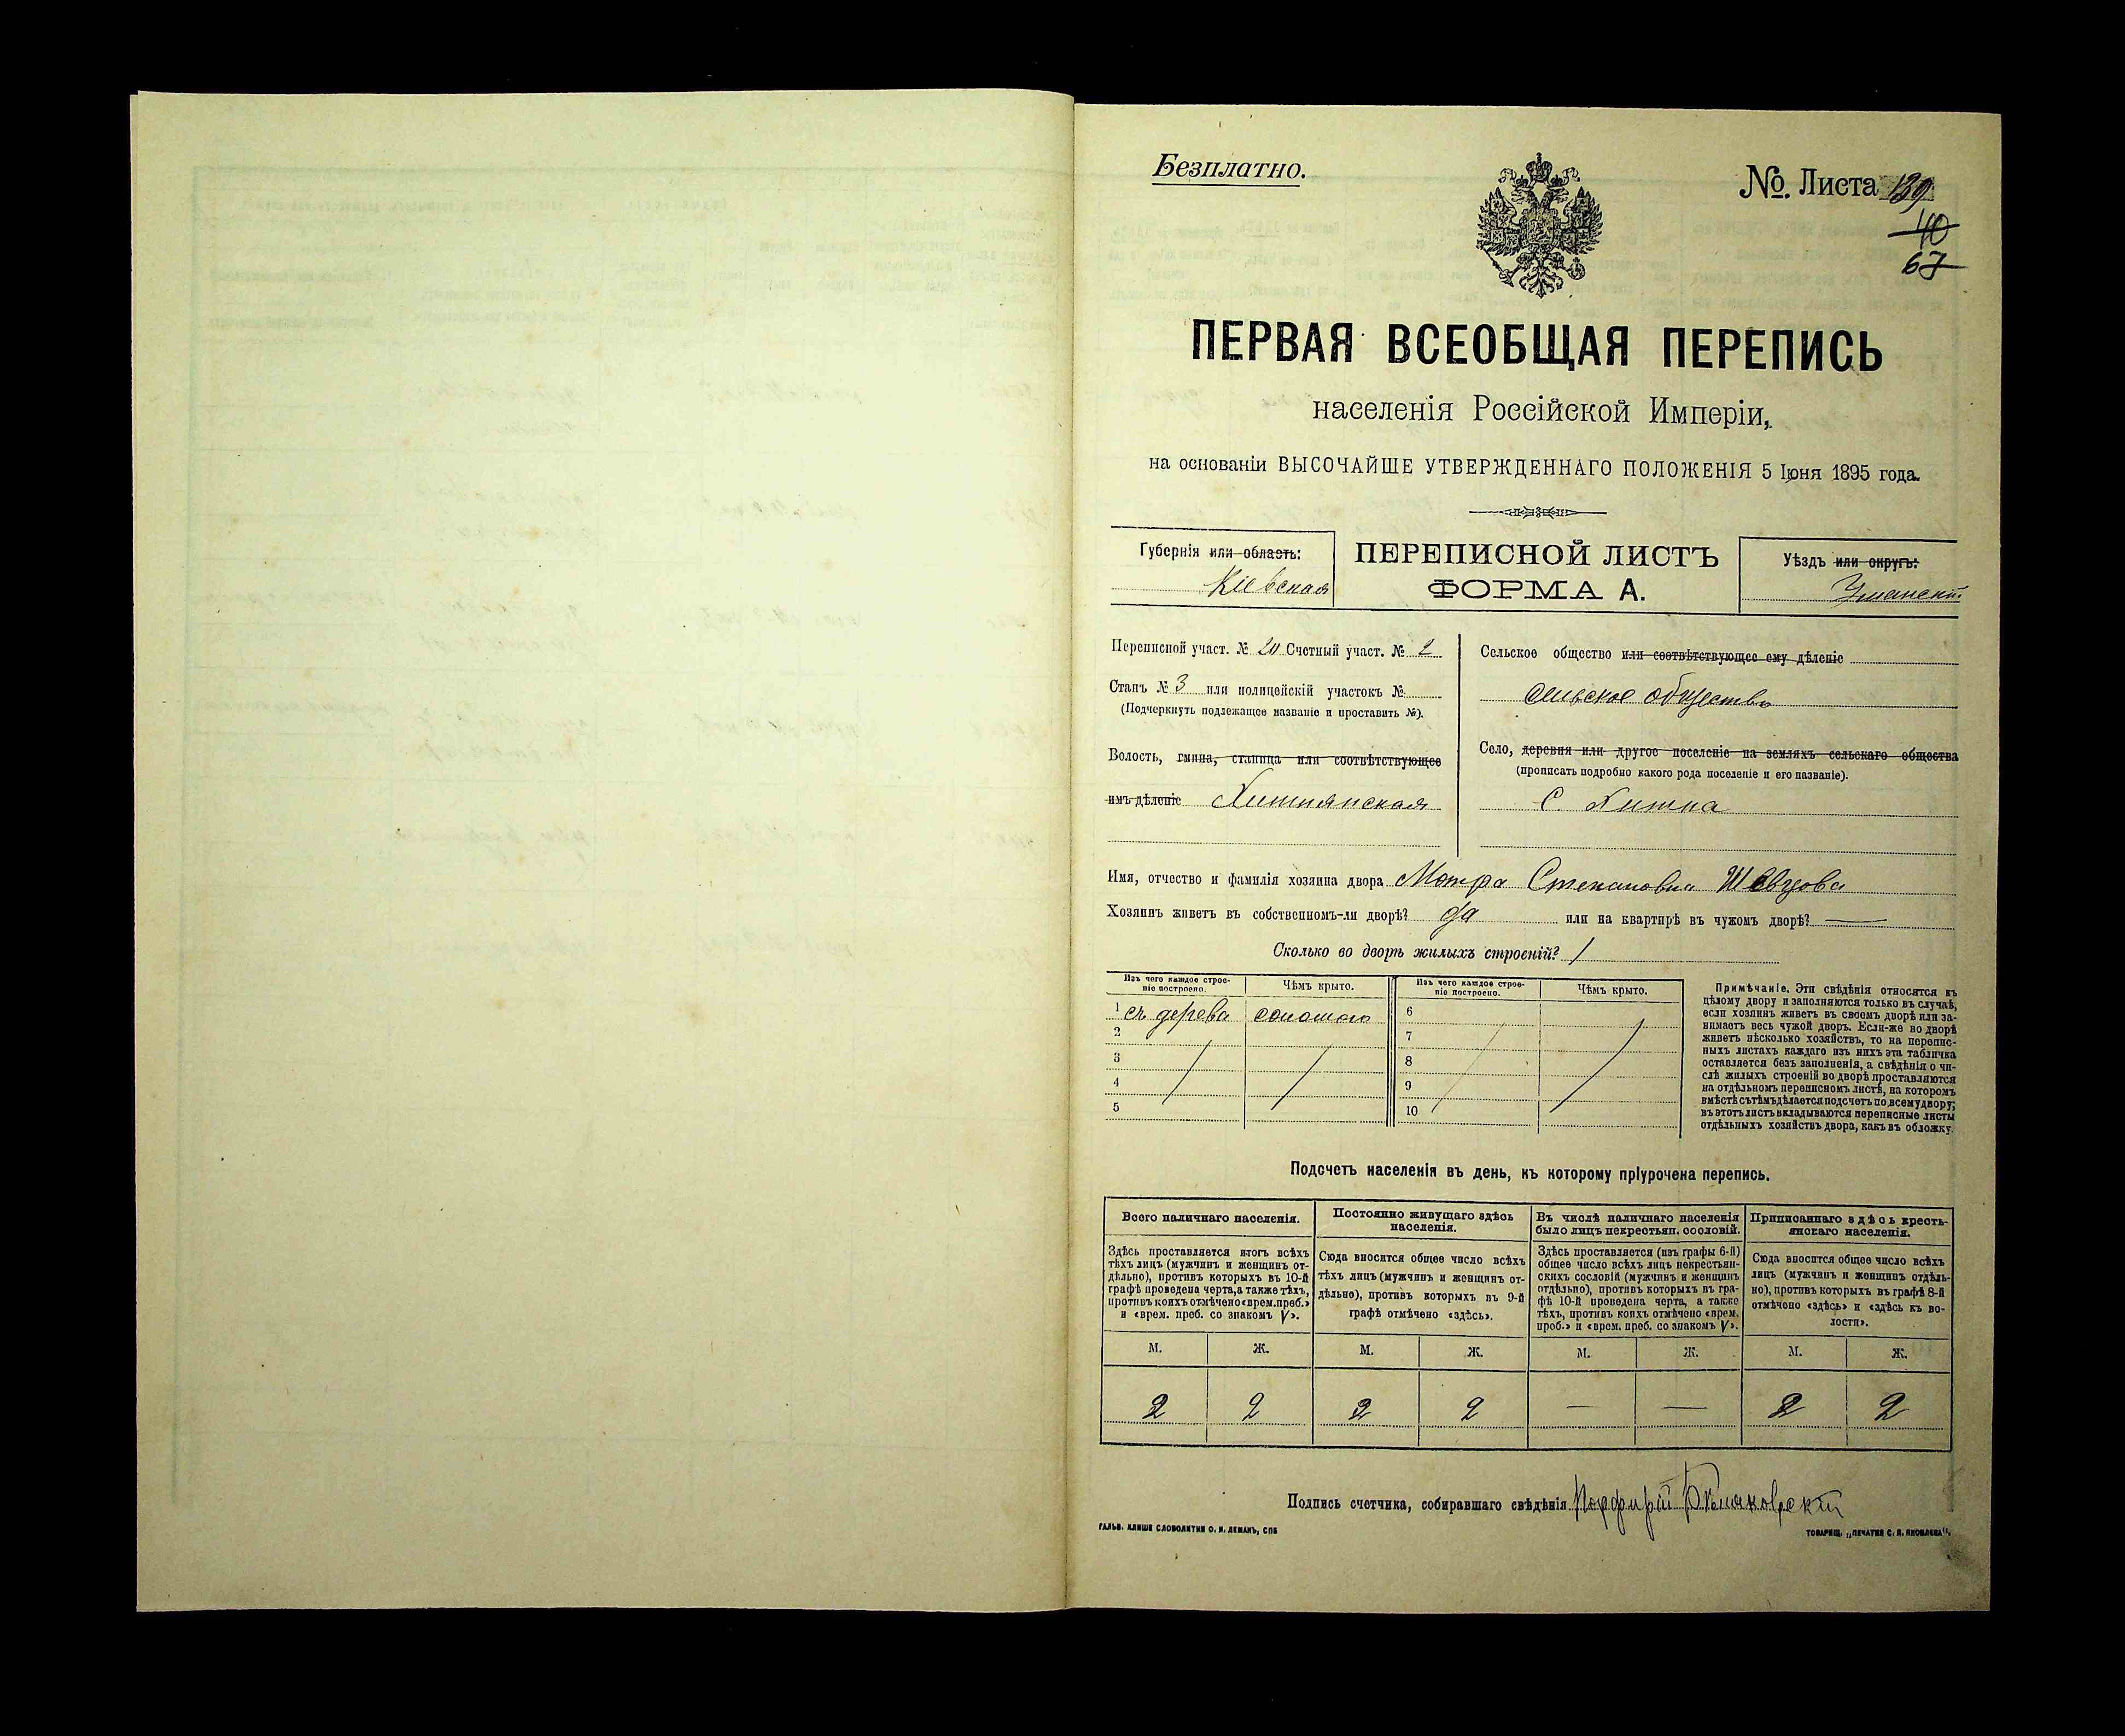 Безплатно.
№. Листа 139
40
67
ПЕРВАЯ ВСЕОБЩАЯ ПЕРЕПИСЬ
населенія Россійской Имперіи,
на основаніи ВЫСОЧАЙШЕ УТВЕРЖДЕННАГО ПОЛОЖЕНІЯ 5 Іюня 1895 года.
Губернія или область:
Кіевская
ПЕРЕПИСНОЙ ЛИСТЪ
ФОРМА А.
Уѣздъ или округъ:
Уманскій
Переписной участ. № 20 Счетный участ. № 2
Станъ № 3 или полицейскій участокъ №
(Подчеркнуть подлежащее названіе и проставить №).
Волость, гмина, станица или соотвѣтствующее
имъ дѣленіе Хижнянская
Сельское общество или соотвѣтствующее ему дѣленіе
сельское общество
Село, деревня или другое поселеніе на земляхъ сельскаго общества
(прописать подробно какого рода поселеніе и его названіе).
С. Хижна
Имя, отчество и фамилія хозяина двора Мотра Степановна Шевцова
Хозяинъ живетъ въ собственномъ-ли дворѣ? да или на квартирѣ въ чужомъ дворѣ? —
Сколько во дворѣ жилыхъ строеній? 1
Изъ чего каждое строе-
ніе построено.
Чѣмъ крыто.
Изъ чего каждое строе-
ніе построено.
Чѣмъ крыто.
1 съ дерева соломою 6
2 7
3 8
4 9
5 10
Примѣчаніе. Эти свѣдѣнія относятся къ
цѣлому двору и заполняются только въ случаѣ,
если хозяинъ живетъ въ своемъ дворѣ или за-
нимаетъ весь чужой дворъ. Если-же во дворѣ
живетъ нѣсколько хозяйствъ, то на перепис-
ныхъ листахъ каждаго изъ нихъ эта табличка
оставляется безъ заполненія, а свѣдѣнія о чи-
слѣ жилыхъ строеній во дворѣ проставляются
на отдѣльномъ переписномъ листѣ, на которомъ
вмѣстѣ съ тѣмъ дѣлается подсчетъ по всему двору;
въ этотъ листъ вкладываются переписные листы
отдѣльныхъ хозяйствъ двора, какъ въ обложку.
Подсчетъ населенія въ день, къ которому пріурочена перепись.
Всего наличнаго населенія.
Здѣсь проставляется итогъ всѣхъ
тѣхъ лицъ (мужчинъ и женщинъ от-
дѣльно), противъ которыхъ въ 10-й
графѣ проведена черта, а также тѣхъ,
противъ коихъ отмѣчено «врем. преб.»
и «врем. преб. со знакомъ V».
Постоянно живущаго здѣсь
населенія.
Сюда вносится общее число всѣхъ
тѣхъ лицъ (мужчинъ и женщинъ от-
дѣльно), противъ которыхъ въ 9-й
графѣ отмѣчено «здѣсь».
Въ числѣ наличнаго населенія
было лицъ некрестьян. сословій.
Здѣсь проставляется (изъ графы 6-й)
общее число всѣхъ лицъ некрестьян-
скихъ сословій (мужчинъ и женщинъ
отдѣльно), противъ которыхъ въ гра-
фѣ 10-й проведена черта, а также
тѣхъ, противъ коихъ отмѣчено «врем.
преб.» и «врем. преб. со знакомъ V».
Приписаннаго здѣсь кресть-
янскаго населенія.
Сюда вносится общее число всѣхъ
лицъ (мужчинъ и женщинъ отдѣль-
но), противъ которыхъ въ графѣ 8-й
отмѣчено «здѣсь» и «здѣсь къ во-
лости».
М. Ж. М. Ж. М. Ж. М. Ж.
2 2 2 2 — — 2 2
Подпись счетчика, собиравшаго свѣдѣнія Порфирій
ГАЛЬВ. КЛИШЕ СЛОВОЛИТНИ О. И. ЛЕМАНЪ, СПБ
ТОВАРИЩ. „ПЕЧАТНЯ С. П. ЯКОВЛЕВА".